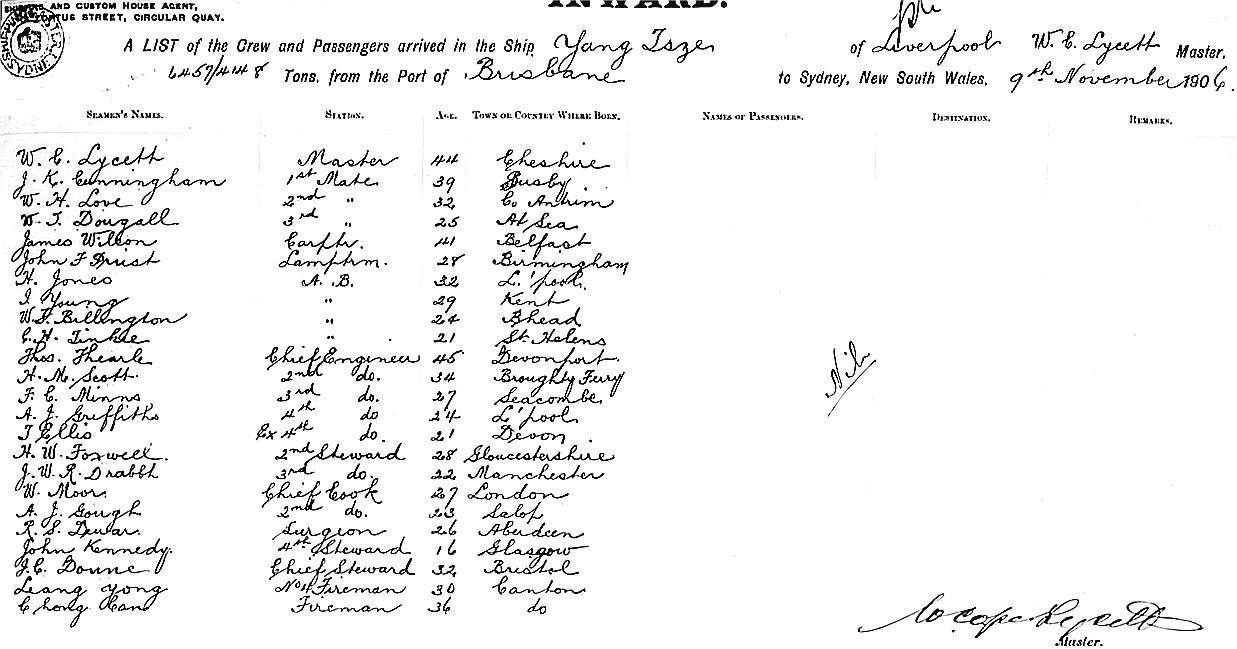 AND CUSTOM HOUSE AGENT,
STREET, CIRCULAR QUAY.
INWARD.
SYDNEY
A LIST of the Crew and Passengers arrived in the Ship Yang Tsze of Liverpool W. C. Lycett Master,
6457/4148 Tons, from the Port of Brisbane to Sydney, New South Wales, 9th November 1906.
SEAMEN'S NAMES. STATION. AGE. TOWN OR COUNTRY WHERE BORN. NAMES OF PASSENGERS. DESTINATION. REMARKS.
W. C. Lycett Master 44 Cheshire
J. K. Cunningham 1st Mate 39 Busby
W. H. Love 2nd " 32 Co Antrim
W. J. Dougall 3rd " 25 At Sea
James Wilson Carptr. 41 Belfast
John F Lamptrm. 28 Birmingham
H. Jones A. B. 32 L.'pool.
J. Young " 29 Kent
W. F. Billington " 24 Bhead
C. H. Tinkle " 21 St. Helens
Thos. Thearle Chief Engineer 45 Devonport.
H. M. Scott. 2nd do. 34 Broughty Ferry
F. C. Minns 3rd do. 27 Seacombe
A. J. Griffiths 4th do 24 L'pool
J Ellis Ex 4th do. 21 Devon
H. W. Foxwell. 2nd Steward 28 Gloucestershire
J. W. R. Drabbh 3rd do. 22 Manchester
W. Moor. Chief Cook 27 London
A. J. Gough 2nd do. 23 Salop
R. S. Dewar. Surgeon 26 Aberdeen
John Kennedy. 4th Steward 16 Glasgow
J. C. Donne Chief Steward 32 Bristol
Leang Yong No 1 Fireman 30 Canton
Chong Can Fireman 36 do
Nil
Lycett
Master.